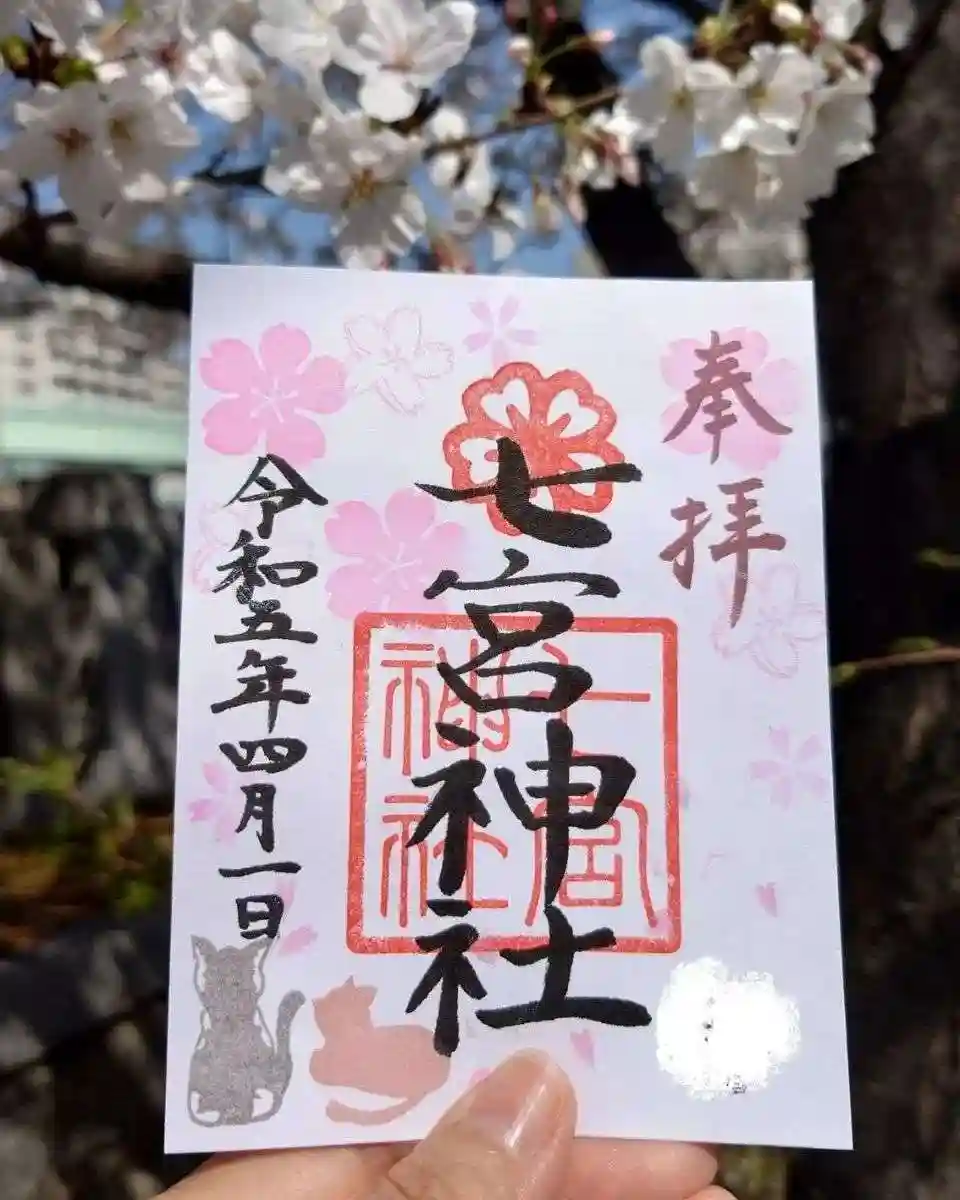 奉拝
七宮神社
七宮
神社
令和五年四月一日